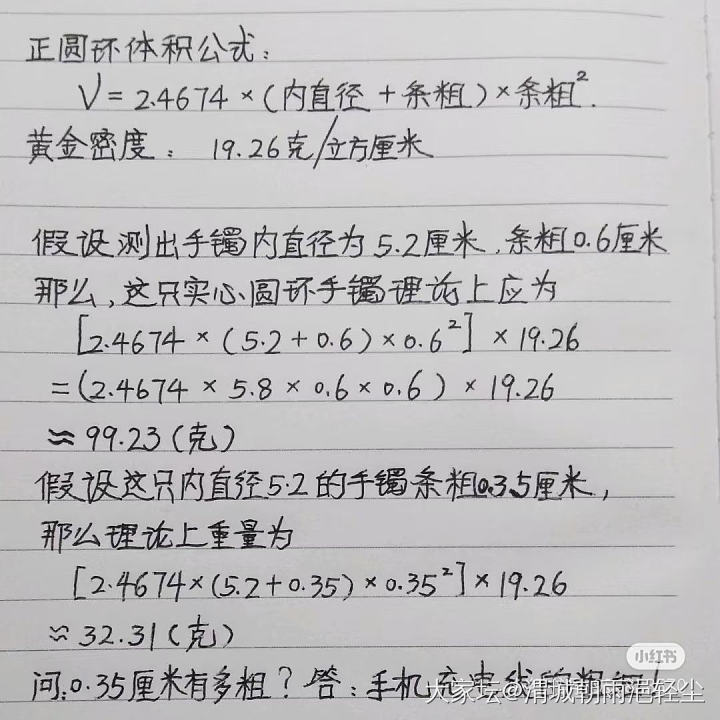 正圆环体积公式：
V = 2.4674 × (内直径 + 条粗) × 条粗².
黄金密度： 19.26克/立方厘米
假设测出手镯内直径为5.2厘米，条粗0.6厘米
那么，这只实心圆环手镯理论上应为
[2.4674 × (5.2 + 0.6) × 0.6²] × 19.26
= (2.4674 × 5.8 × 0.6 × 0.6) × 19.26
≈ 99.23 (克)
假设这只内直径5.2的手镯条粗0.35厘米，
那么理论上重量为
[2.4674×(5.2+0.35)×0.35²]×19.26
≈ 32.31 (克)
小红书
问：0.35厘米有多粗？答：手机充电线的粗细！
大家坛@渭城朝雨浥轻尘